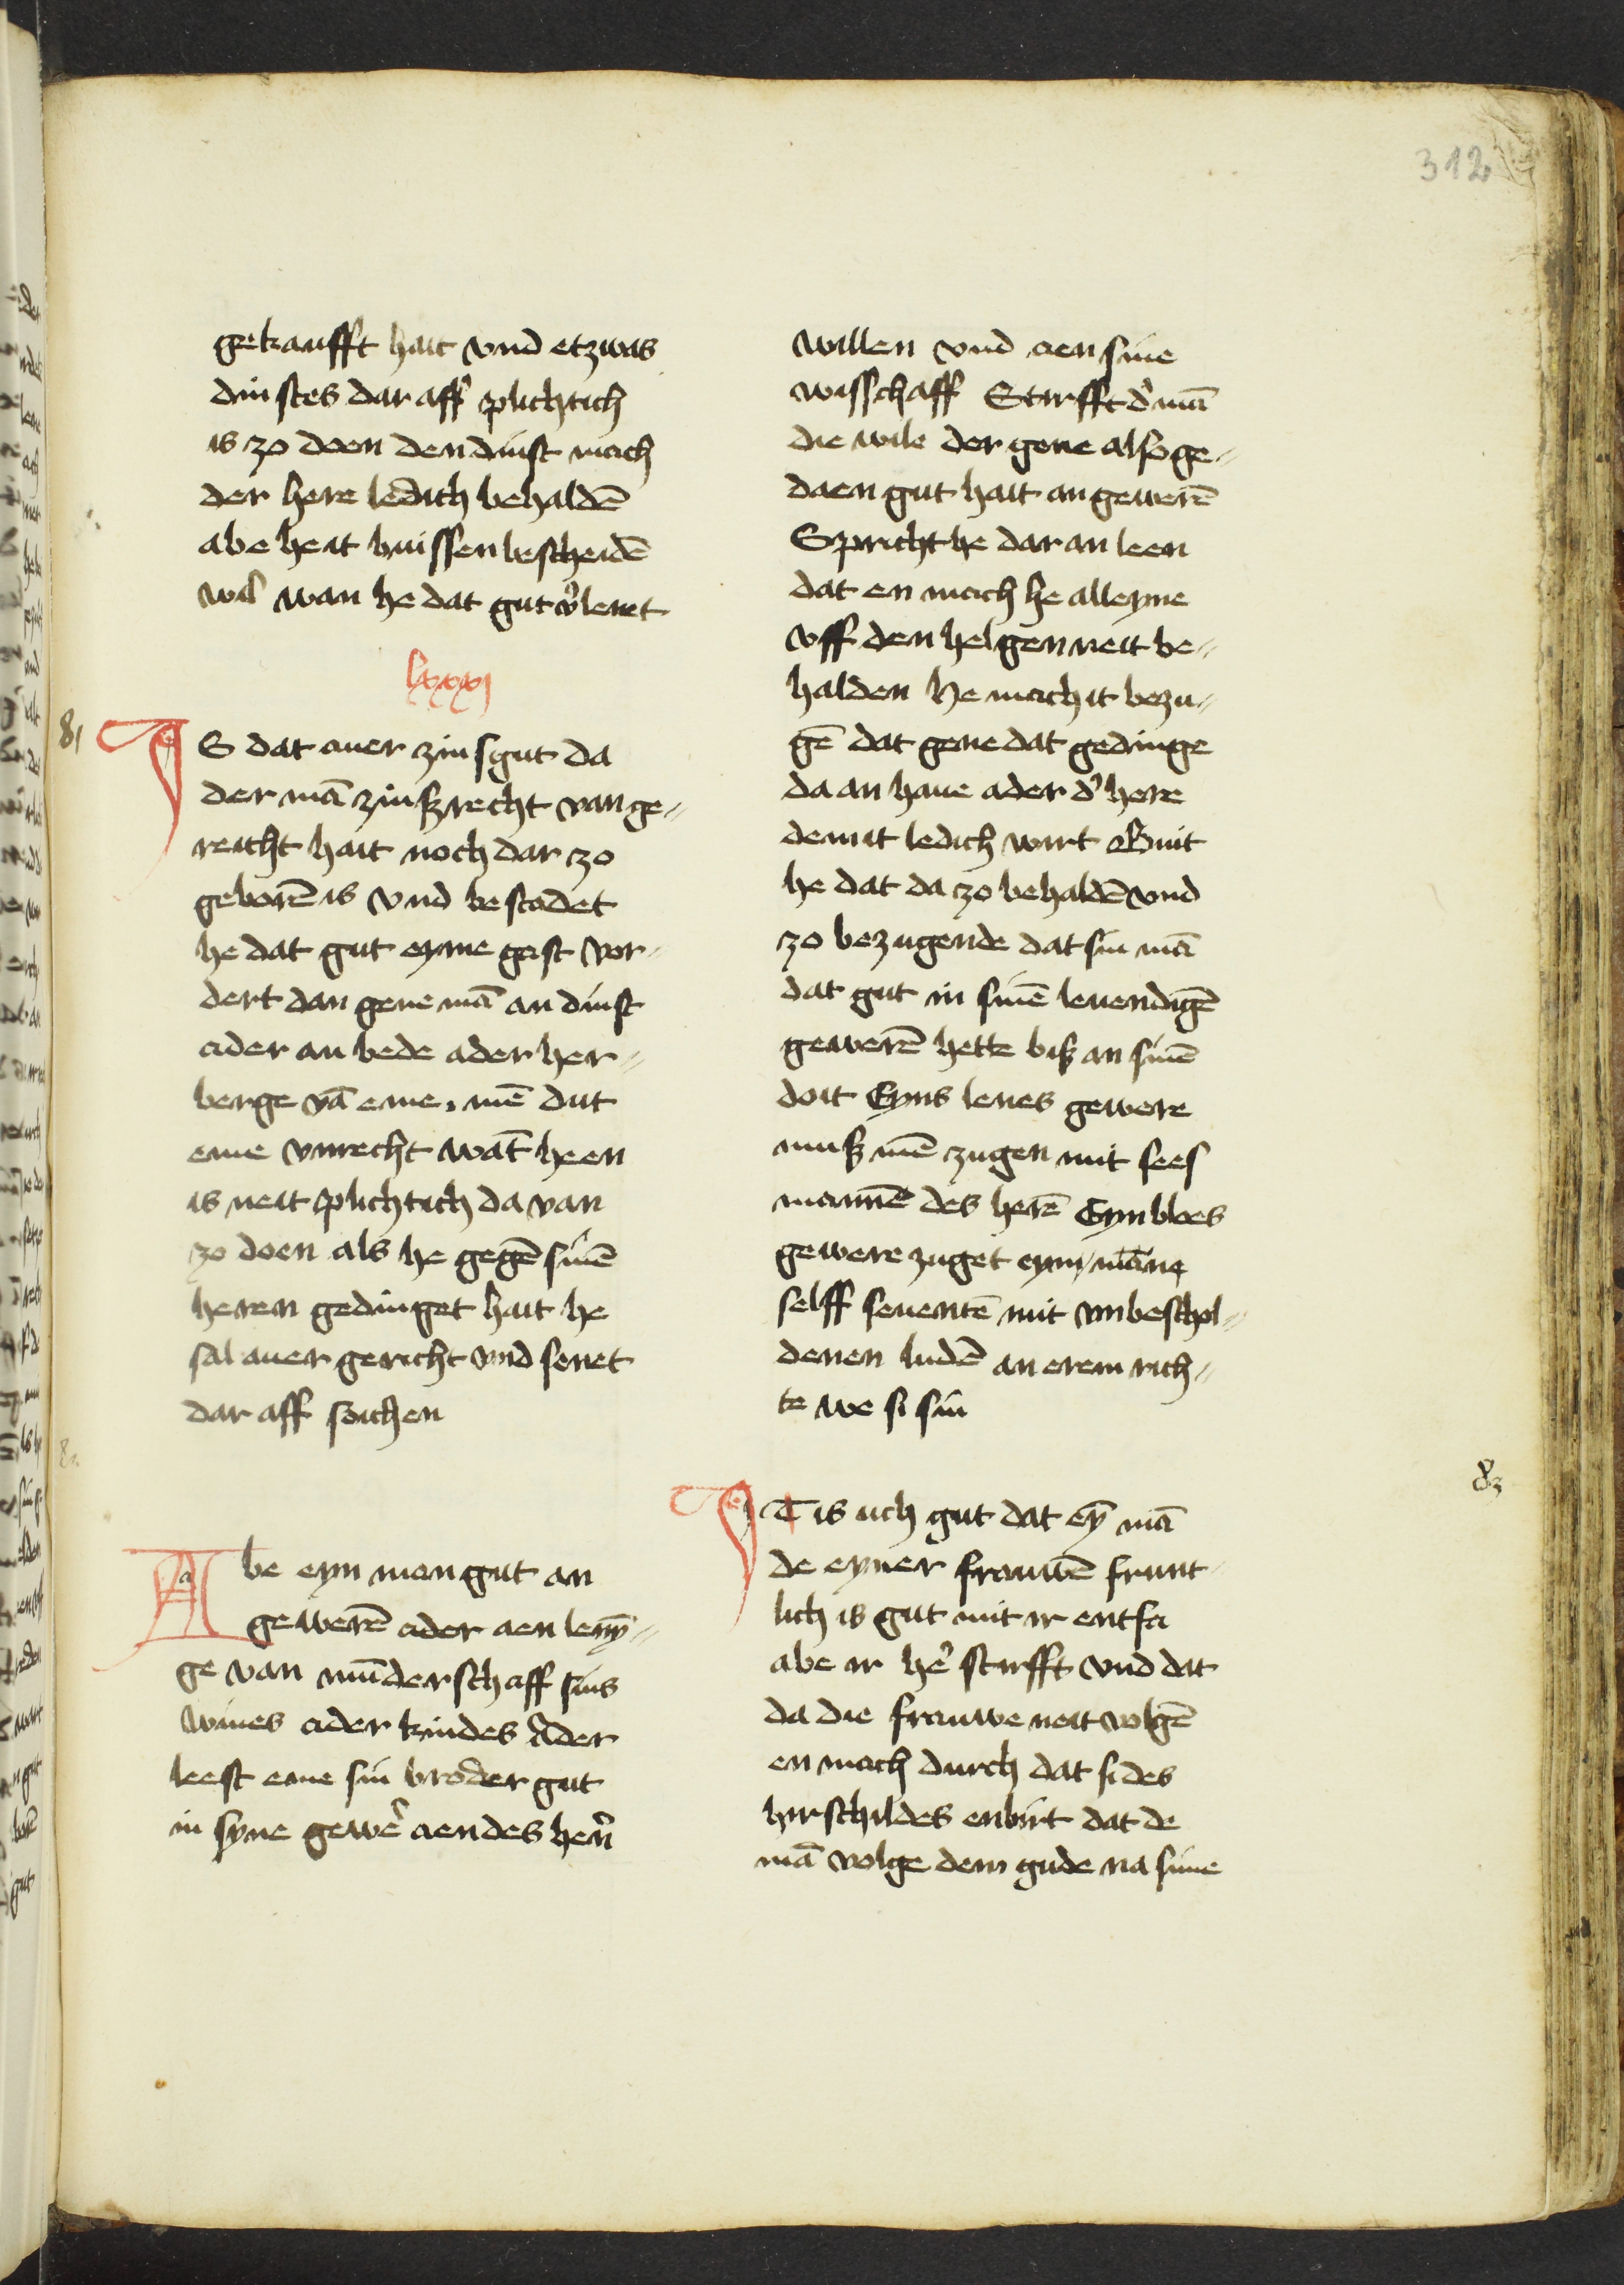 312
gekaufft hait vnd etzwas
dinstes dar aff plichtich
is zo doen den dinst mach
der here ledich behaldē
abe he it buissen bescheidē
wil wan he dat gut v'lenet
lxxxj
81
IS dat auer zinsgut da
der mā zinßrecht van ge„
reicht hait noch dar zo
geborē is vnd bestadet
he dat gut eyme gast vor„
dert dan gene mā an dinst
ader an bede ader her„
berge vā eme, mē dut
eme vnrecht wāt he en
is neit plichtich da van
zo doen als he gegē sinē
heren gedinget hait he
sal auer gericht vnd senet
dar aff soichen
Abe eyn man gut an
gewerē ader aen leny̅„
ge van mūderschaff sins
wiues ader kindes Ader
leest eme sin broder gut
in syne gewe' aen des herñ
willen vnd aen sine
wisschaff Stirfft d' mā
die wile der gene also ge„
daen gut hait an gewerē
Spricht he dar an leen
dat en mach he alleyne
vff den helgen neit be„
halden he mach it bezu„
gē dat gene dat gedinge
da an haue ader d' here
demit ledich wirt But
he dat da zo behaldē vnd
zo bezugende dat sin mā
dat gut in sinē leuendigē
gewerē hette biß an sinē
doit Eyns lenes gewere
muß mē zugen mit sees
mannē des herē Eyn bloes
gewere zuget eyn mānē
selff seuentē mit vnbeschol„
denen ludē an erem rich„
te we si sin
83
IT is uch gut dat ey̅ mā
de eyner frauwē frunt„
lich is gut mit ir entfa
abe ir he' stirfft vnd dat
da die frauwe neit volgē
en mach durch dat si des
hirschildes enbirt dat de
mā volge dem gude na sime